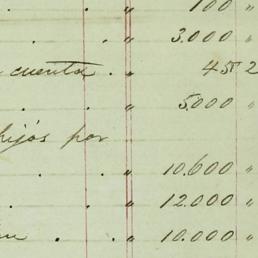 . " 100 "
. . " 3.000 "
cuenta . " 452
. " 5.000 "
hijos por
. . " 10.600 "
. . " 12.000 "
. . " 10.000 "